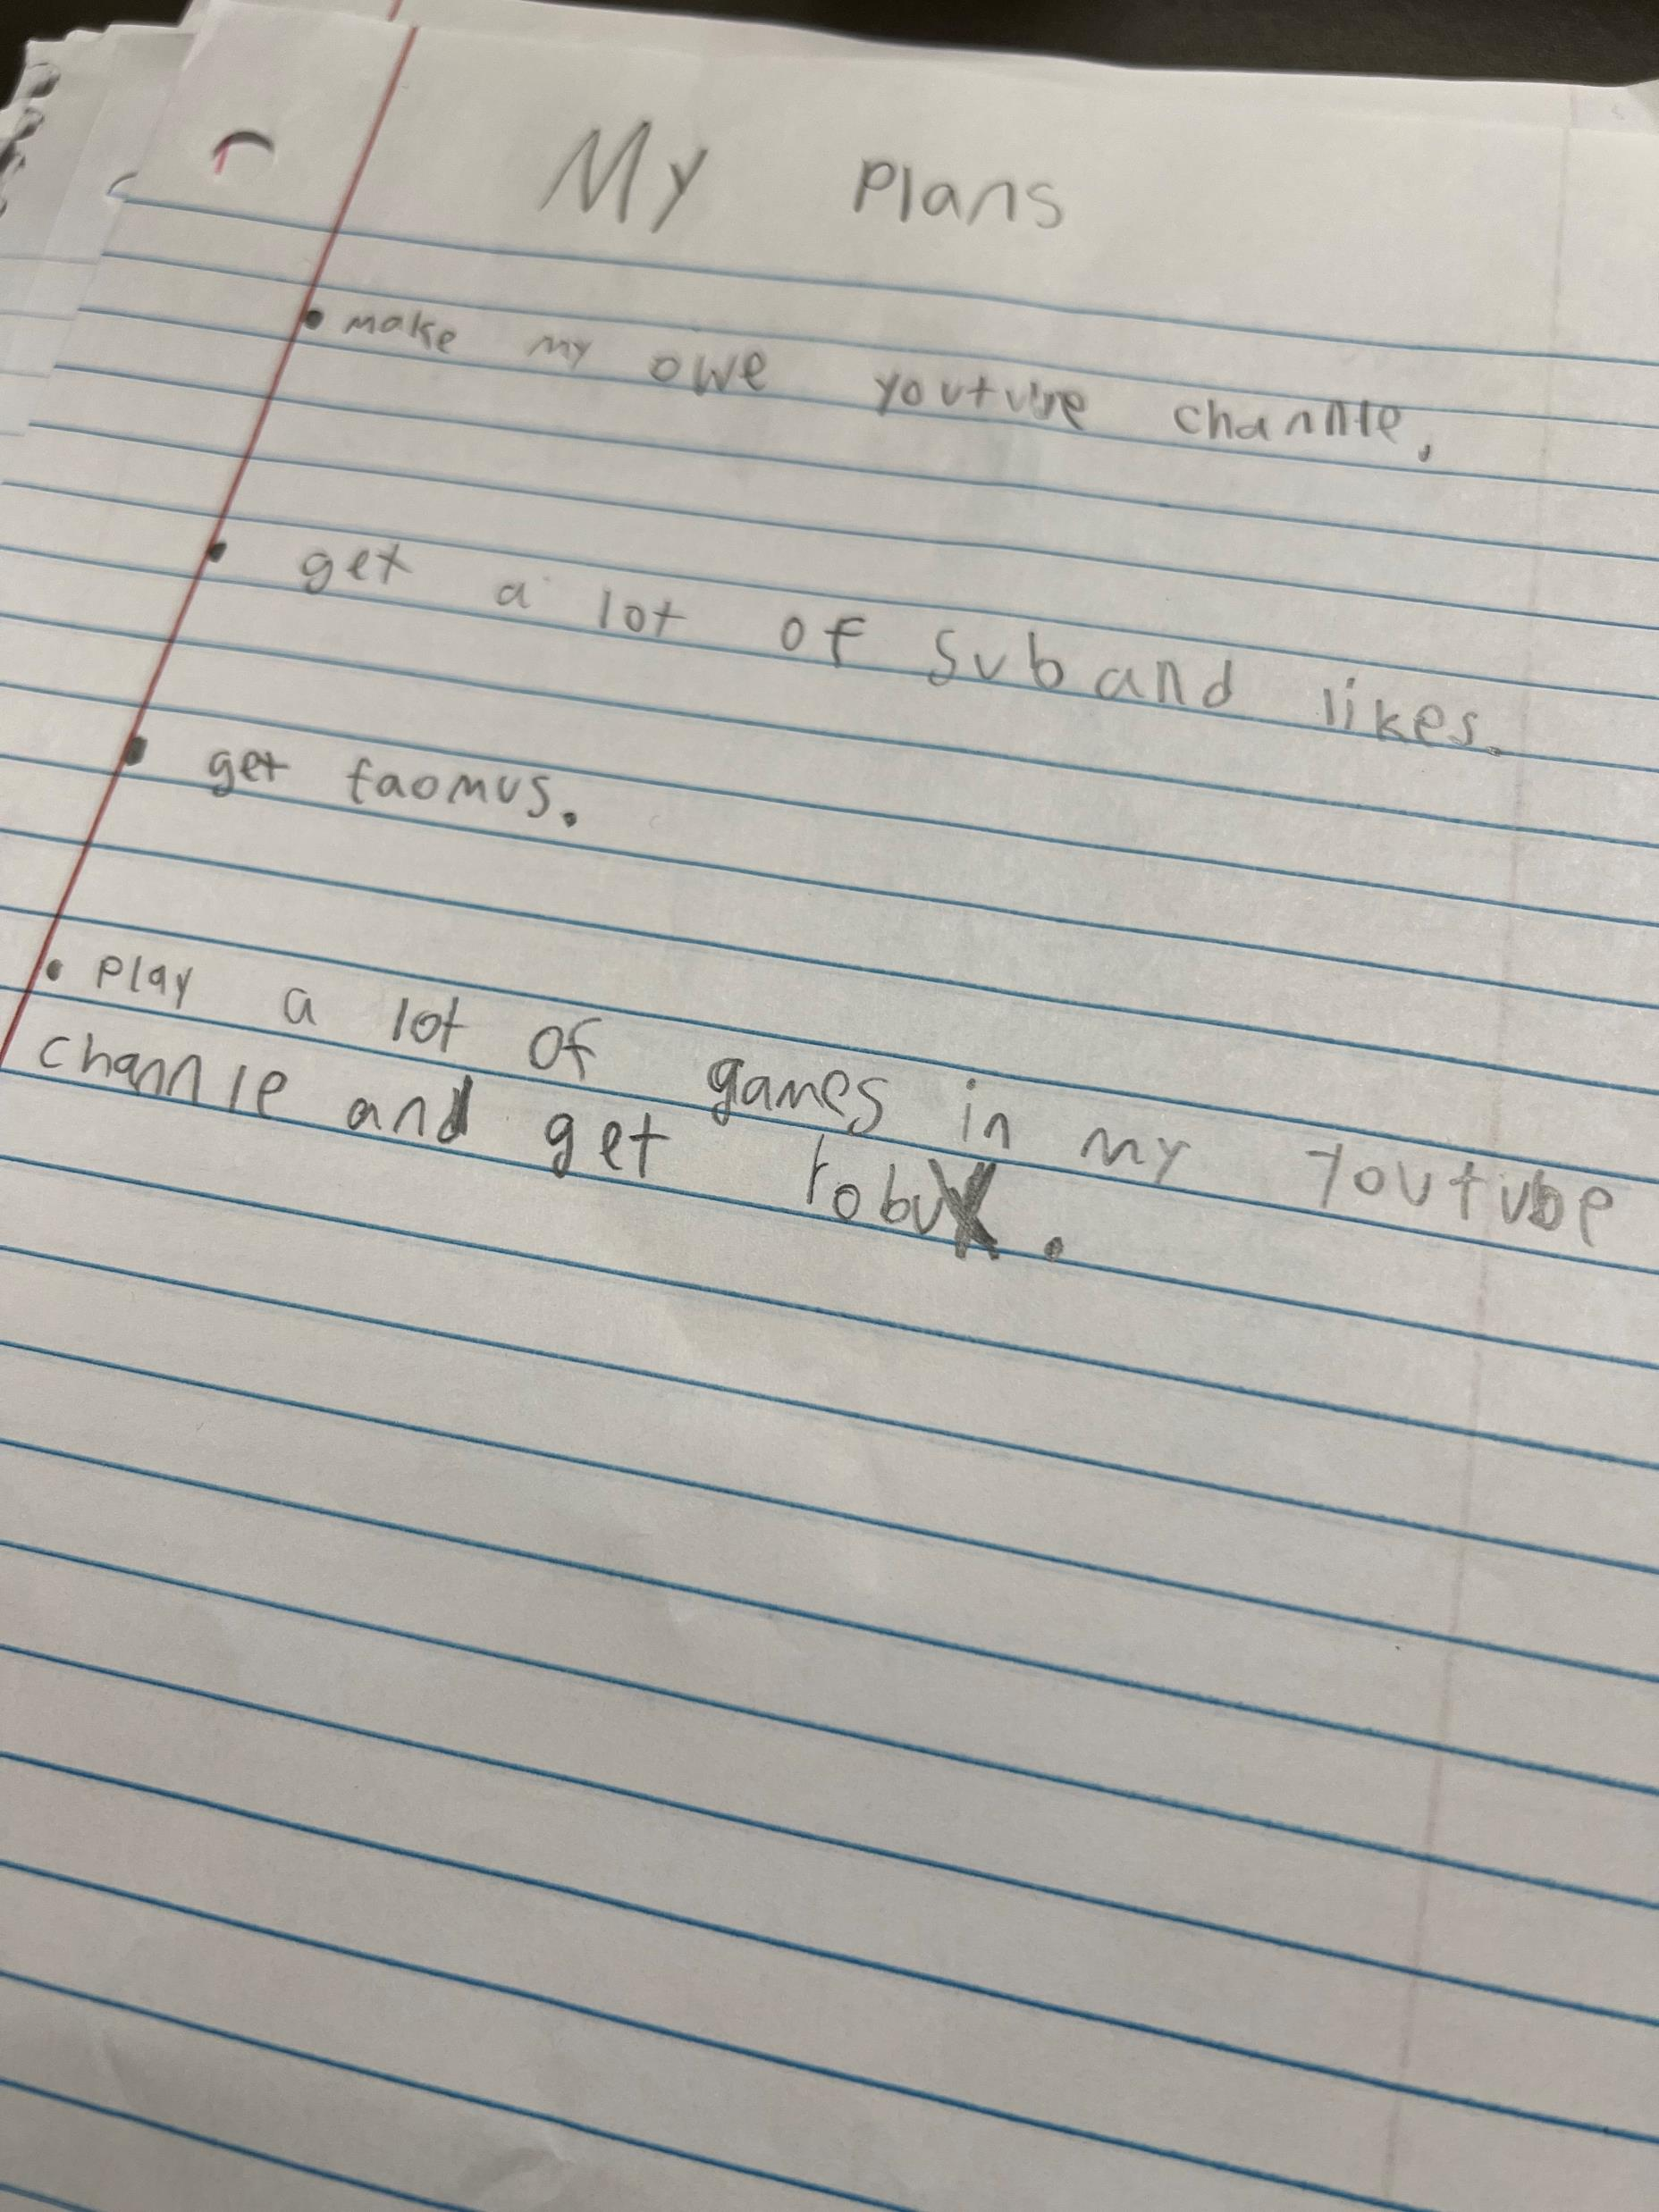 My Plans
• make my owe youtube channle,
• get a lot of sub and likes.
• get faomus.
• Play a lot of games in my Youtube
channle and get robux.